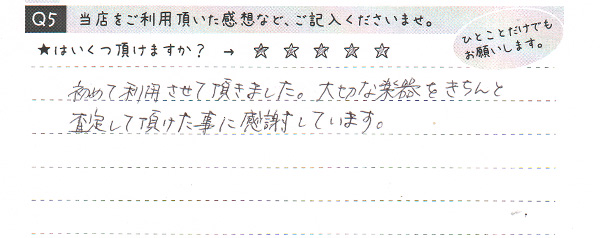 Q5 当店をご利用頂いた感想など、ご記入くださいませ。
ひとことだけでも
お願いします。
★はいくつ頂けますか？ → ☆ ☆ ☆ ☆ ☆
初めて利用させて頂きました。大切な楽器をきちんと
査定して頂けた事に感謝しています。